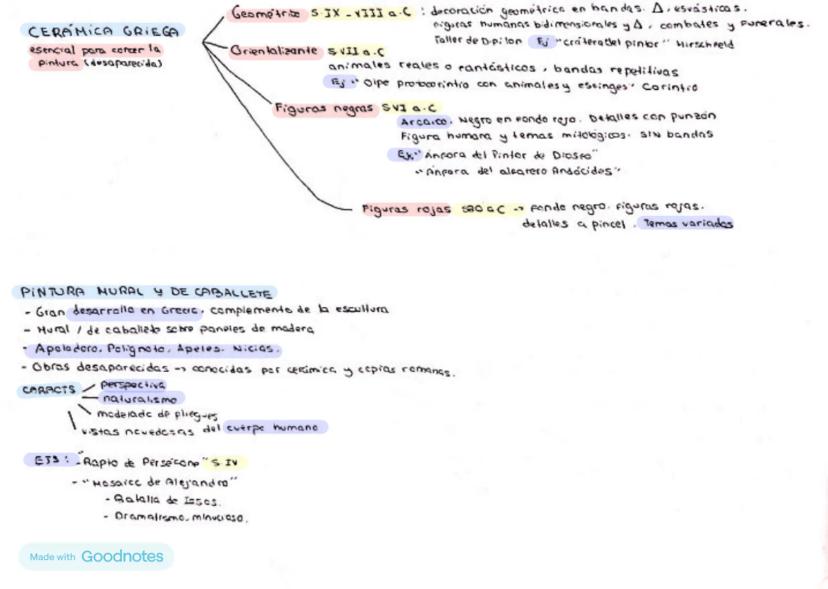 CERÁMICA GRIEGA
esencial para conocer la
pintura (desaparecida)
Geométrica S IX - VIII a.C : decoración geométrica en bandas. Δ, esvásticas.
Figuras humanas bidimensionales y Δ, combates y funerales.
Taller de Dipilon Ej "cráteradel pintor" Hirschfeld
Orientalizante S VII a.C
animales reales o fantásticos, bandas repetitivas
Ej "Olpe protocorintio con animales y esfinges" Corintio
Figuras negras S VI a.C
Arcaico. Negro en fondo rojo. Detalles con punzón
Figura humana y temas mitológicos. SIN bandas
Ej. "Ánfora del Pintor de Diosfo"
"Ánfora del alfarero Andócides"
Figuras rojas 530 a.C → fondo negro. figuras rojas.
detalles a pincel. Temas variados
PINTURA MURAL Y DE CABALLETE
- Gran desarrollo en Grecia, complemento de la escultura
- Mural / de caballete sobre paneles de madera
- Apolodoro, Polignoto, Apeles, Nicias.
- Obras desaparecidas → conocidas por cerámica y copias romanas.
CARACTS
perspectiva
naturalismo
modelado de pliegues
vistas novedosas del cuerpo humano
EJS: - "Rapto de Perséfone" S. IV
- "Mosaico de Alejandro"
- Batalla de Issos.
- Dramatismo, minucioso.
Made with Goodnotes